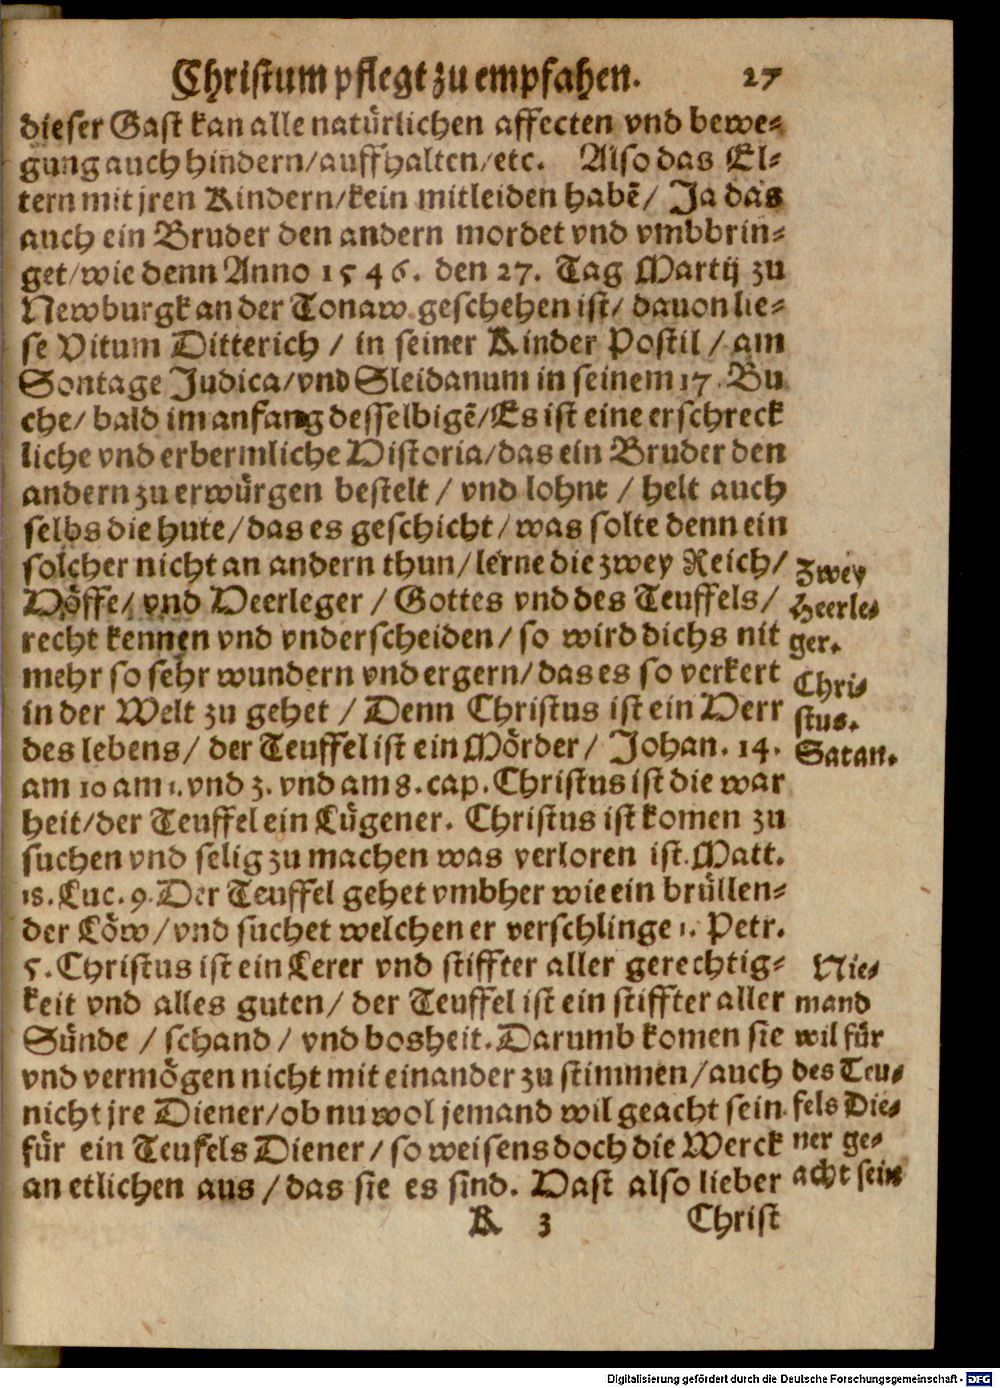 Christum pflegt zu empfahen. 27
dieser Gast kan alle natürlichen affecten vnd bewe-
gung auch hindern/auffhalten/etc. Also das El-
tern mit jren Kindern/kein mitleiden habē/ Ja das
auch ein Bruder den andern mordet vnd vmbbrin-
get/wie denn Anno 1546. den 27. Tag Martij zu
Newburgk an der Tonaw geschehen ist/ dauon lie-
se Vitum Ditterich / in seiner Kinder Postil / am
Sontage Judica/vnd Sleidanum in seinem 17. Bu
che/ bald im anfang desselbigē/Es ist eine erschreck
liche vnd erbermliche Historia/das ein Bruder den
andern zu erwürgen bestelt / vnd lohnt / helt auch
selbs die hute/das es geschicht/was solte denn ein
solcher nicht an andern thun/lerne die zwey Reich/
Höffe/ vnd Heerleger / Gottes vnd des Teuffels/
recht kennen vnd vnderscheiden/so wird dichs nit
mehr so sehr wundern vnd ergern/das es so verkert
in der Welt zu gehet / Denn Christus ist ein Herr
des lebens/ der Teuffel ist ein Mörder/ Johan. 14.
am 10 am 1. vnd 3. vnd am 8. cap. Christus ist die war
heit/der Teuffel ein Lügener. Christus ist komen zu
suchen vnd selig zu machen was verloren ist. Matt.
18. Luc. 9. Der Teuffel gehet vmbher wie ein brüllen-
der Löw/vnd suchet welchen er verschlinge 1. Petr.
5. Christus ist ein Lerer vnd stiffter aller gerechtig-
keit vnd alles guten/ der Teuffel ist ein stiffter aller
Sünde / schand / vnd bosheit. Darumb komen sie
vnd vermögen nicht mit einander zu stimmen/auch
nicht jre Diener/ob nu wol jemand wil geacht sein
für ein Teufels Diener/so weisens doch die Werck
an etlichen aus/das sie es sind. Hast also lieber
K 3 Christ
Zwey
Heerle-
ger.
Chri-
stus.
Satan.
Nie-
mand
wil für
des Teu-
fels Die-
ner ge-
acht sein
Digitalisierung gefördert durch die Deutsche Forschungsgemeinschaft - DFG